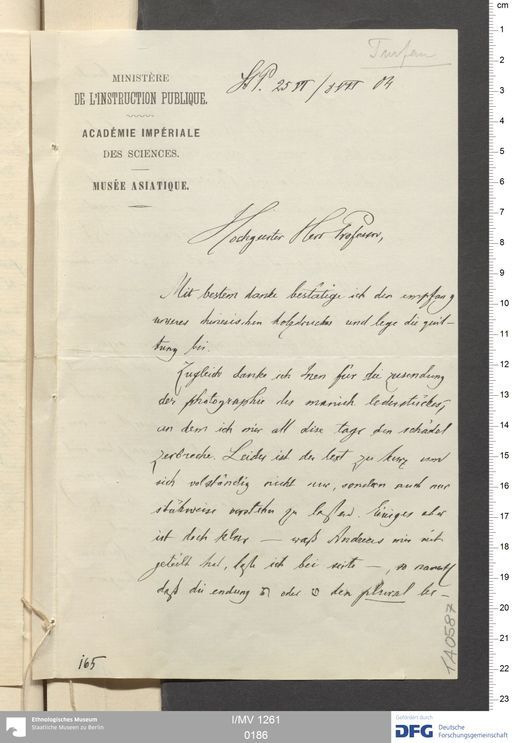 Turfan
MINISTÈRE
DE L'INSTRUCTION PUBLIQUE.
ACADÉMIE IMPÉRIALE
DES SCIENCES.
MUSÉE ASIATIQUE.
StP. 25 VI / 8 VII 04
Hochgeerter Herr Professor,
Mit bestem danke bestätige ich den empfang
unseres chinesischen holzdruckes und lege die quit-
tung bei.
Zugleich danke ich Inen für die zusendung
der photographie des manich. lederstückes,
an dem ich mir all dise tage den schädel
zerbreche. Leider ist der text zu kurz um
sich volständig nicht nur, sondern auch nur
stükweise verstehn zu laßen. Einiges aber
ist doch klar — waß Andreas mir mit
geteilt hat, laße ich bei seite —, so
daß die endung oder den plural be-
165
1A0587
cm
1
2
3
4
5
6
7
8
9
10
11
12
13
14
15
16
17
18
19
20
21
22
23
Ethnologisches Museum
Staatliche Museen zu Berlin
I/MV 1261
0186
Gefördert durch
DFG
Deutsche
Forschungsgemeinschaft